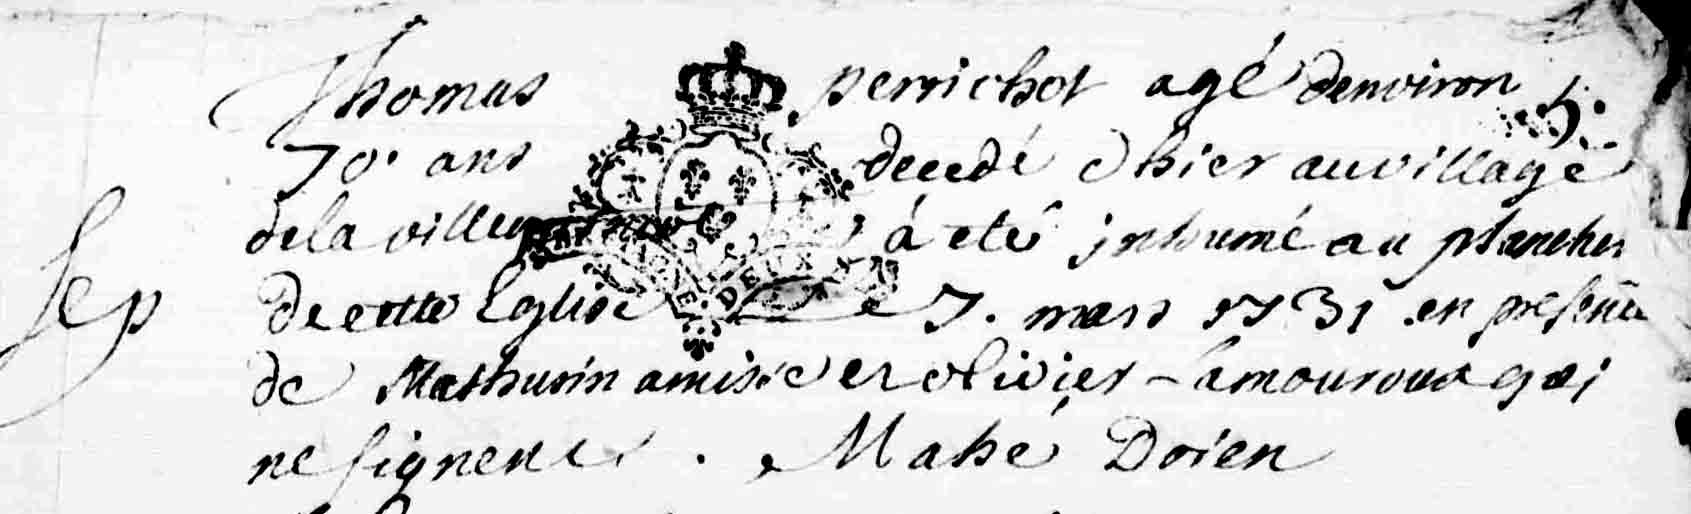 Thomas perrichot agé denviron
5.
70. ans decedé hier au village
dela à eté inhumé au plancher
Sep de cette Eglise le 7. mars 1731 en presence
de Mathurin amisse et olivier Lamouroux qui
ne signent. Mahé Doien